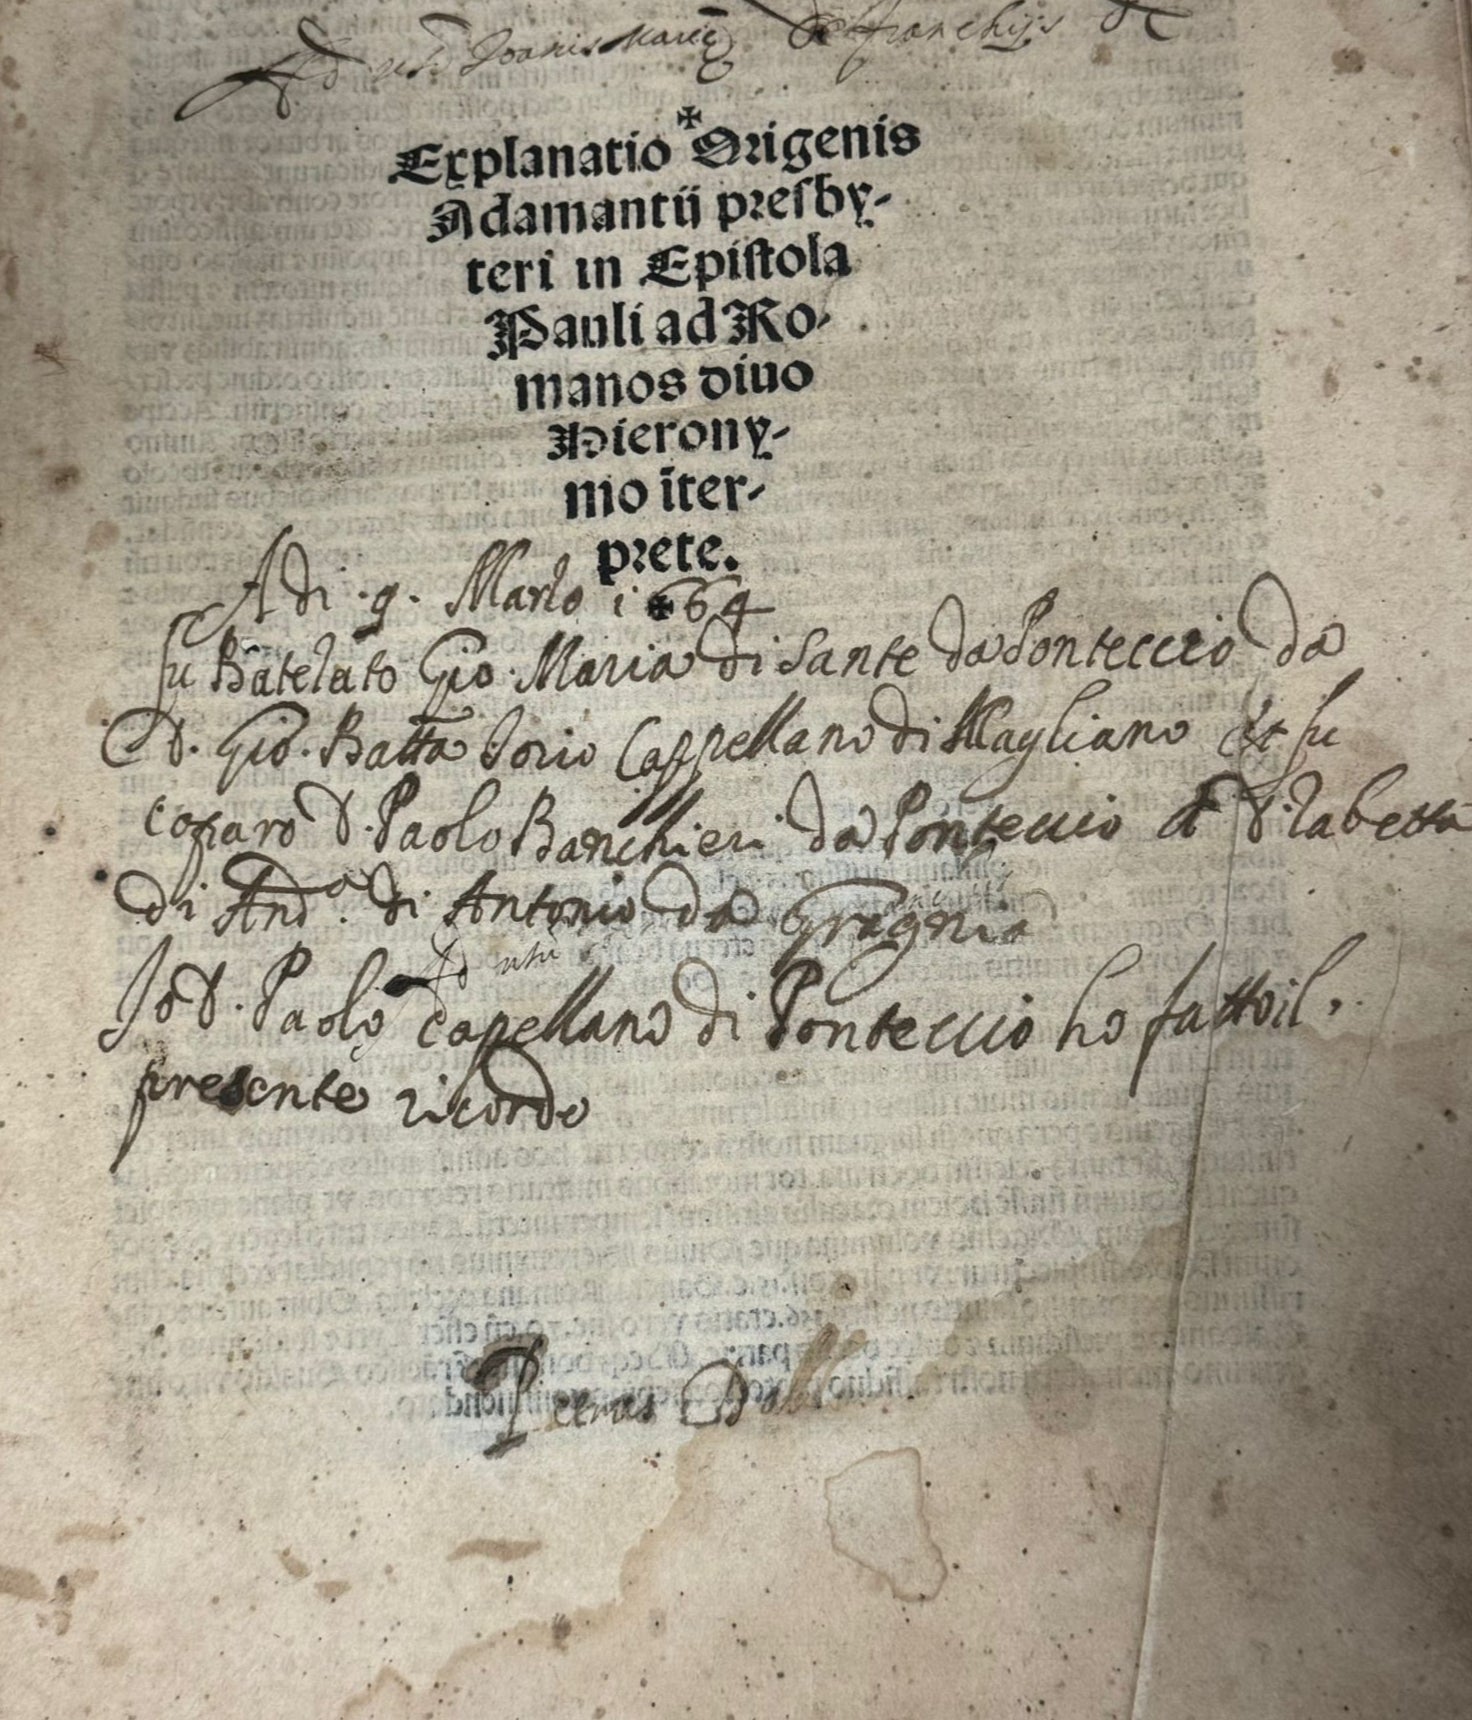 Ad usū Joanis Marię de franchijs
Explanatio Origenis
Adamantij presby-
teri in Epistola
Pauli ad Ro-
manos diuo
Hierony-
mo īter-
prete.
Adi .9. Marzo 1664
fu Batelato Gio. Maria di Sante da Ponteccio da
D. Gio. Batta Cappellano di Magliano et fu
coparo D. Paolo Banchieri da Ponteccio
di And.ª di Antonio da Gragnia
Ad usū
Io D. Paolo Capellano di Ponteccio ho fatto il
presente ricordo